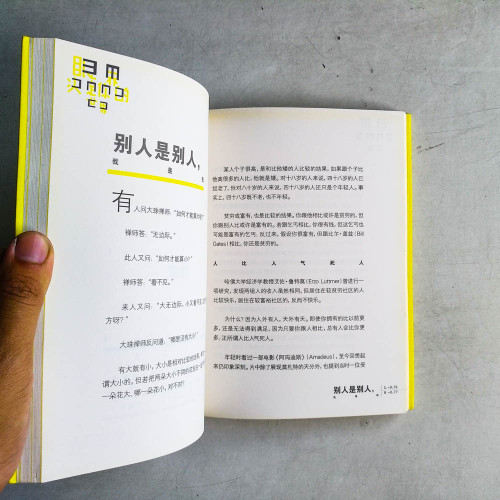 别人是别人，
我是我
有人问大珠禅师："如何才能算大?"
禅师答："无边际。"
此人又问："如何才能算小?"
禅师答："看不见。"
来人又问："大无边际，小又看不见，
方呀?"
大珠禅师反问道："哪里没有大小?"
有大就有小，大小是相对比较的结果，
谓大小的。但若把两朵大小不同的花放在一起
一朵花大、哪一朵花小，对不对?
某人个子很高，是和比他矮的人比较的结果。如果跟个子比
他高很多的人比，他就是矮。对十八岁的人来说，四十八岁的人已
经老了，但对八十岁的人来说，四十八岁的人还只是个年轻人。事
实上，四十八岁既不老，也不年轻。
贫穷或富有，也是比较的结果。你跟他相比或许是贫穷的，但
你跟别人比可能是富有的。若跟乞丐相比，你很有钱，但这乞丐也
可能是富有的乞丐。反过来，假设你很富有，但跟比尔·盖兹(Bill
Gates)相比，你还是贫穷的。
人比人气死人
哈佛大学经济学教授艾佐·鲁特莫(Erzo Luttmer)曾进行一
项研究，发现两组人的收入虽然相同，但居住在较贫穷社区的人
比较快乐，居住在较富裕社区的，反而不快乐。
为什么? 因为人外有人，天外有天。即使你拥有的比以前更
多，还是无法得到满足。因为只要你跟人相比，总有人会比你更
多，正所谓人比人气死人。
年轻时看过一部电影《阿玛迪斯》(Amadeus)，至今回想起
来仍印象深刻。片中除了展现莫札特的天分外，也提到当时一位受
别人是别人，
我是我